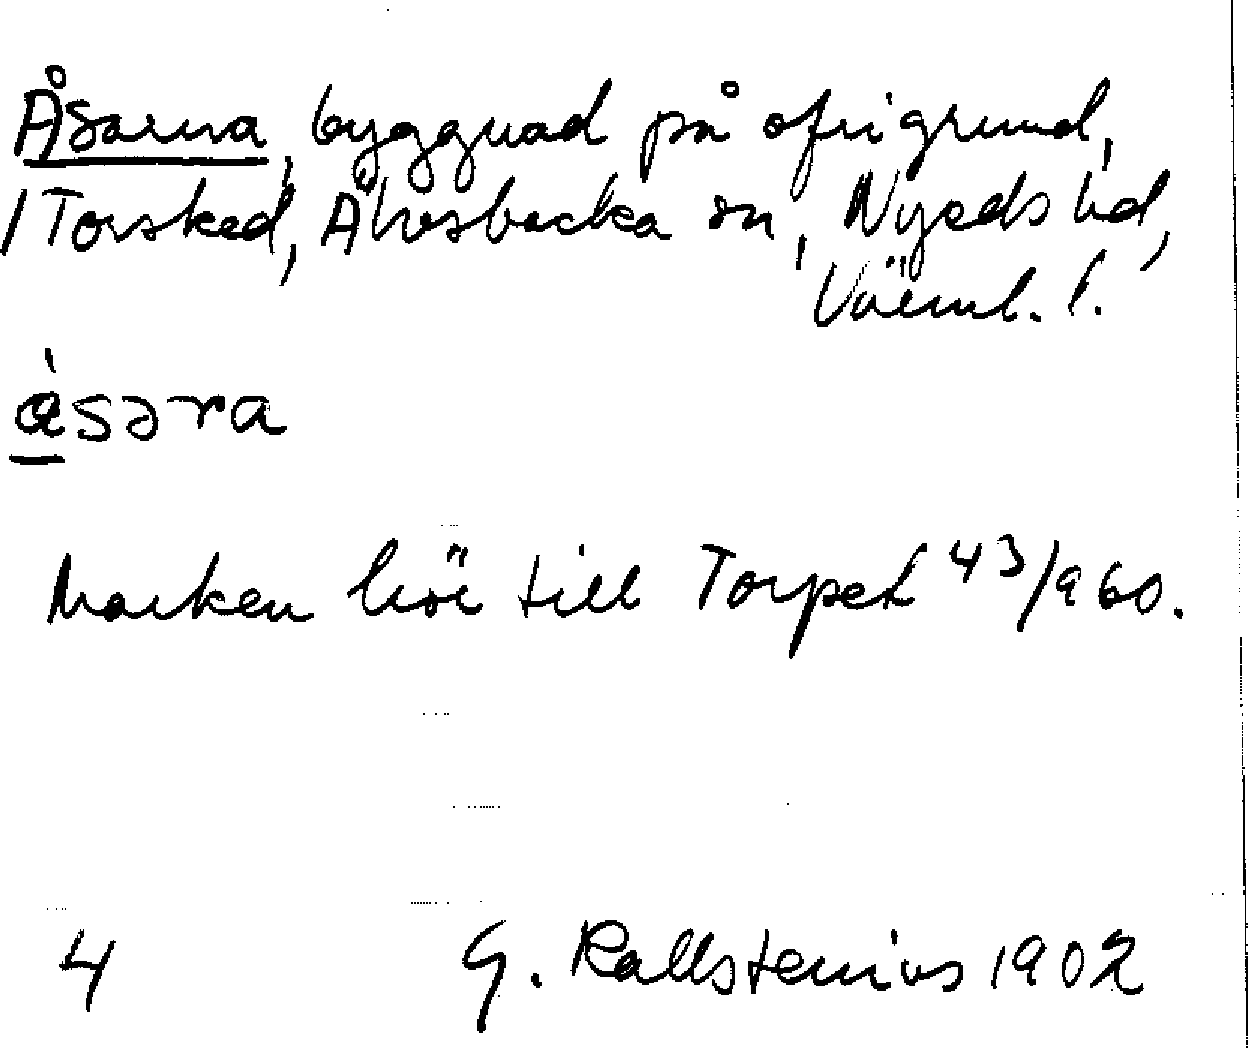 Åsarna, byggnad på ofri grund,
/Torsked, Älvsbacka sn, Nyeds hd,
Värml. l.
åsəra
Marken hör till Torpet 43/960.
4 G. Kallstenius 1902